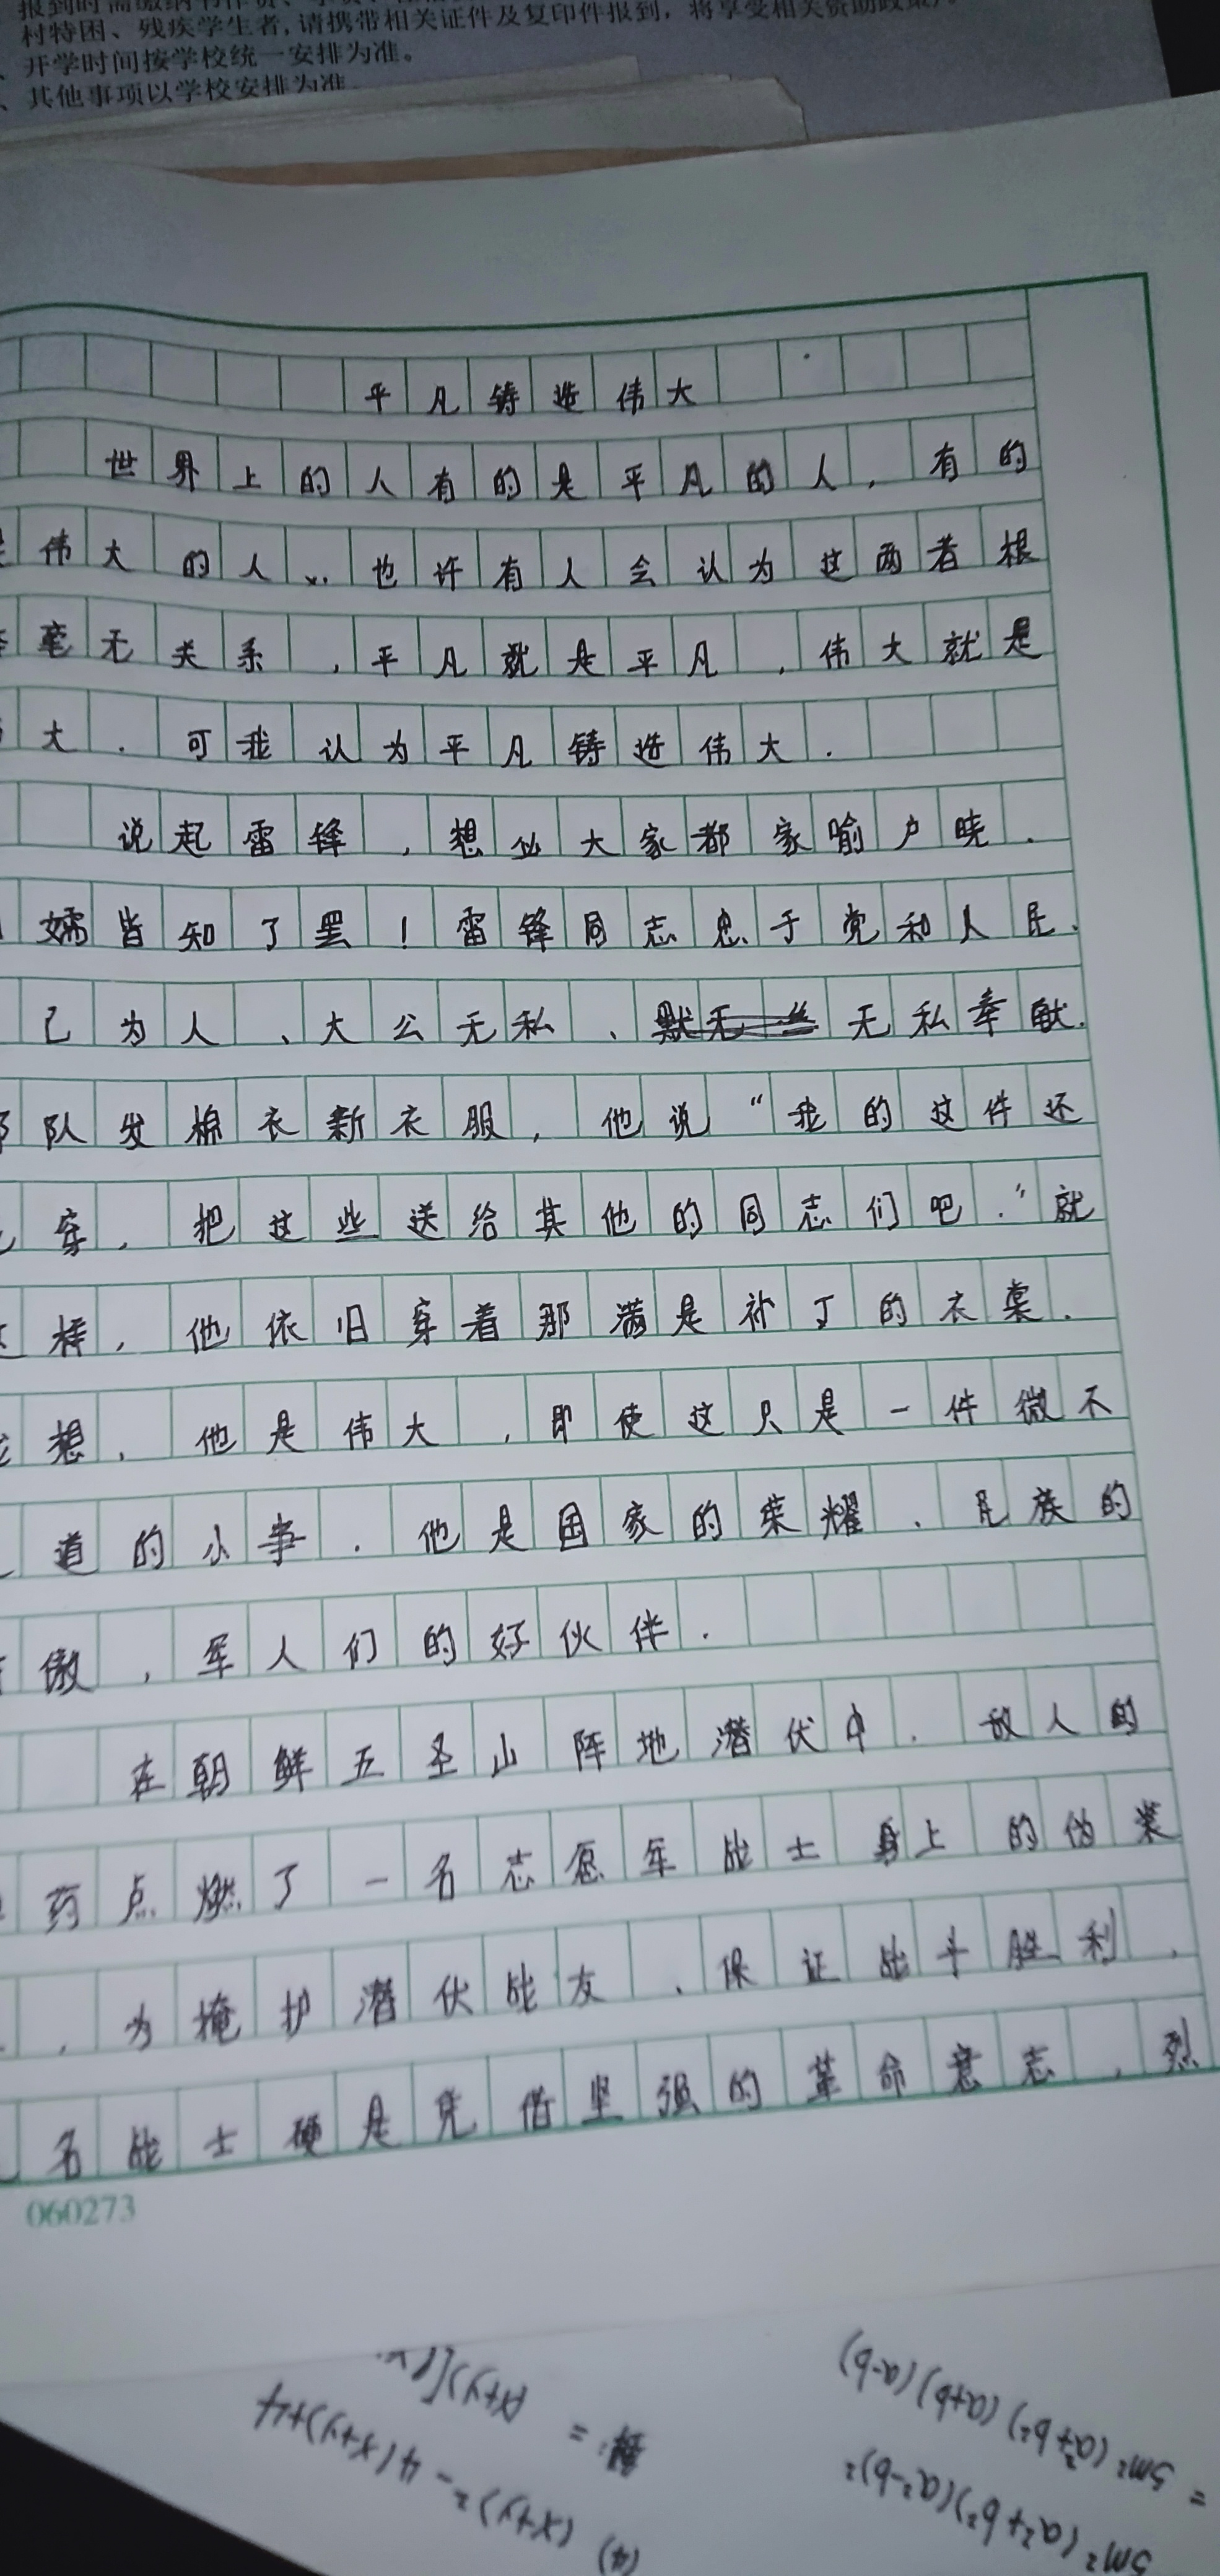 村特困、残疾学生者,请携带相关证件及复印件报到,将享受相关资助政策
、开学时间按学校统一安排为准。
、其他事项以学校安排为准
平凡铸造伟大
世界上的人有的是平凡的人,有的
伟大的人.也许有人会认为这两者根
毫无关系,平凡就是平凡,伟大就是
大.可我认为平凡铸造伟大.
说起雷锋,想必大家都家喻户晓.
孺皆知了罢!雷锋同志忠于党和人民、
己为人、大公无私、无私奉献.
队发棉衣新衣服,他说“我的这件还
穿,把这些送给其他的同志们吧.”就
样,他依旧穿着那满是补丁的衣裳.
想,他是伟大,即使这只是一件微不
道的小事.他是国家的荣耀、民族的
傲,军人们的好伙伴.
在朝鲜五圣山阵地潜伏中.敌人的
药点燃了一名志愿军战士身上的伪装
,为掩护潜伏战友、保证战斗胜利,
名战士硬是凭借坚强的革命意志,烈
060273
(4) (x+y)²-4(x+y)+4
5m²(a²+b²)(a²-b²)
=5m²(a²+b²)(a+b)(a-b)